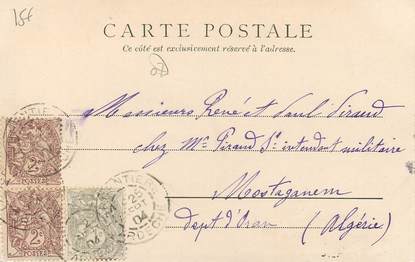 15€
CARTE POSTALE
Ce côté est exclusivement réservé à l'adresse.
Messieurs René et Paul Piraud
chez Mr Piraud St intendant militaire
Mostaganem
Dept d'Oran (Algérie)
2c
POSTES
2c
POSTES
04